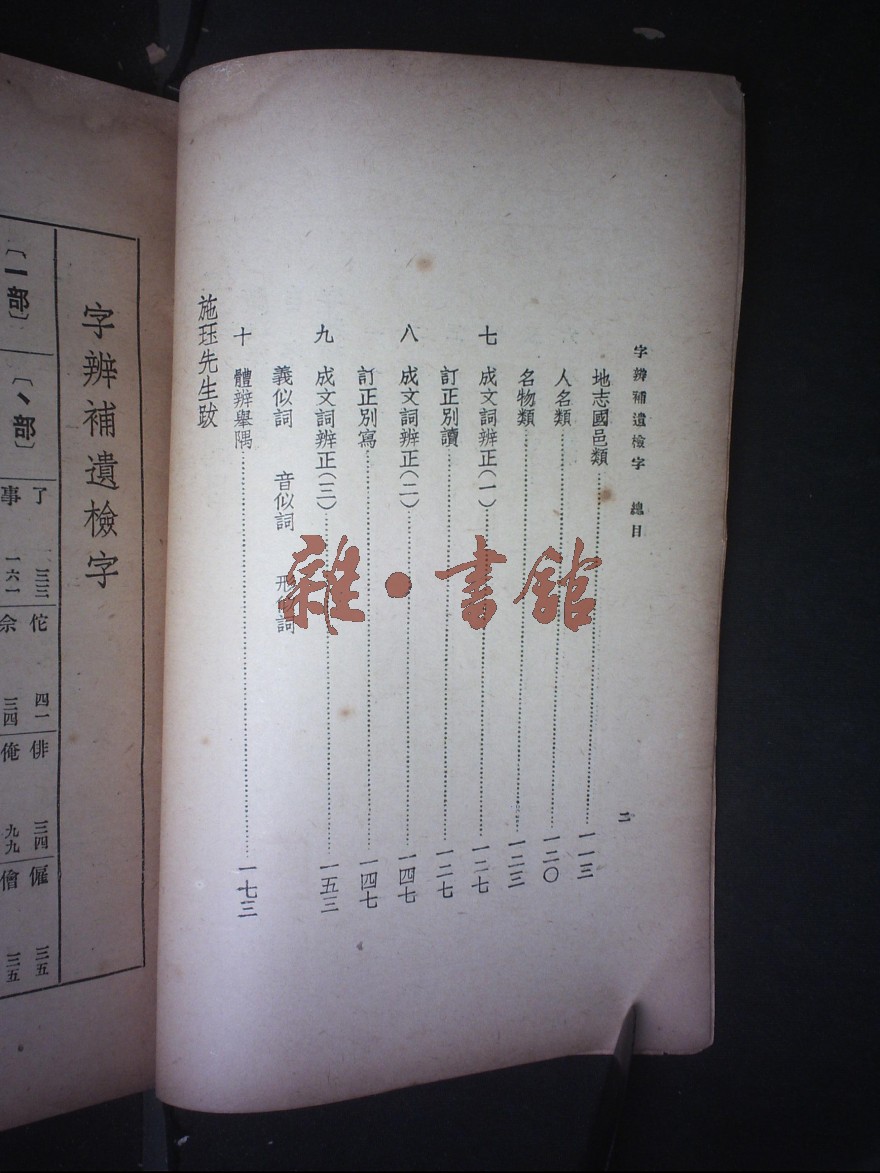 字辨補遺檢字 總目
二
地志國邑類 一一三
人名類 一二〇
名物類 一二三
七 成文詞辨正(一) 一二七
訂正別讀 一二七
八 成文詞辨正(二) 一四七
訂正別寫 一四七
九 成文詞辨正(三) 一五三
義似詞 音似詞 形似詞
十 體辨舉隅 一七三
施珏先生跋
雜·書館
字辨補遺檢字
〔一部〕
〔丶部〕
了 一三三
事 一六一
佗 四一
佘 三四
俳 三四
俺 九九
僱 三五
儈 三五